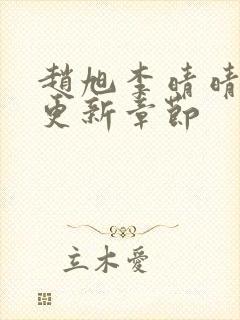 趙旭李晴晴
更新章節
立木愛